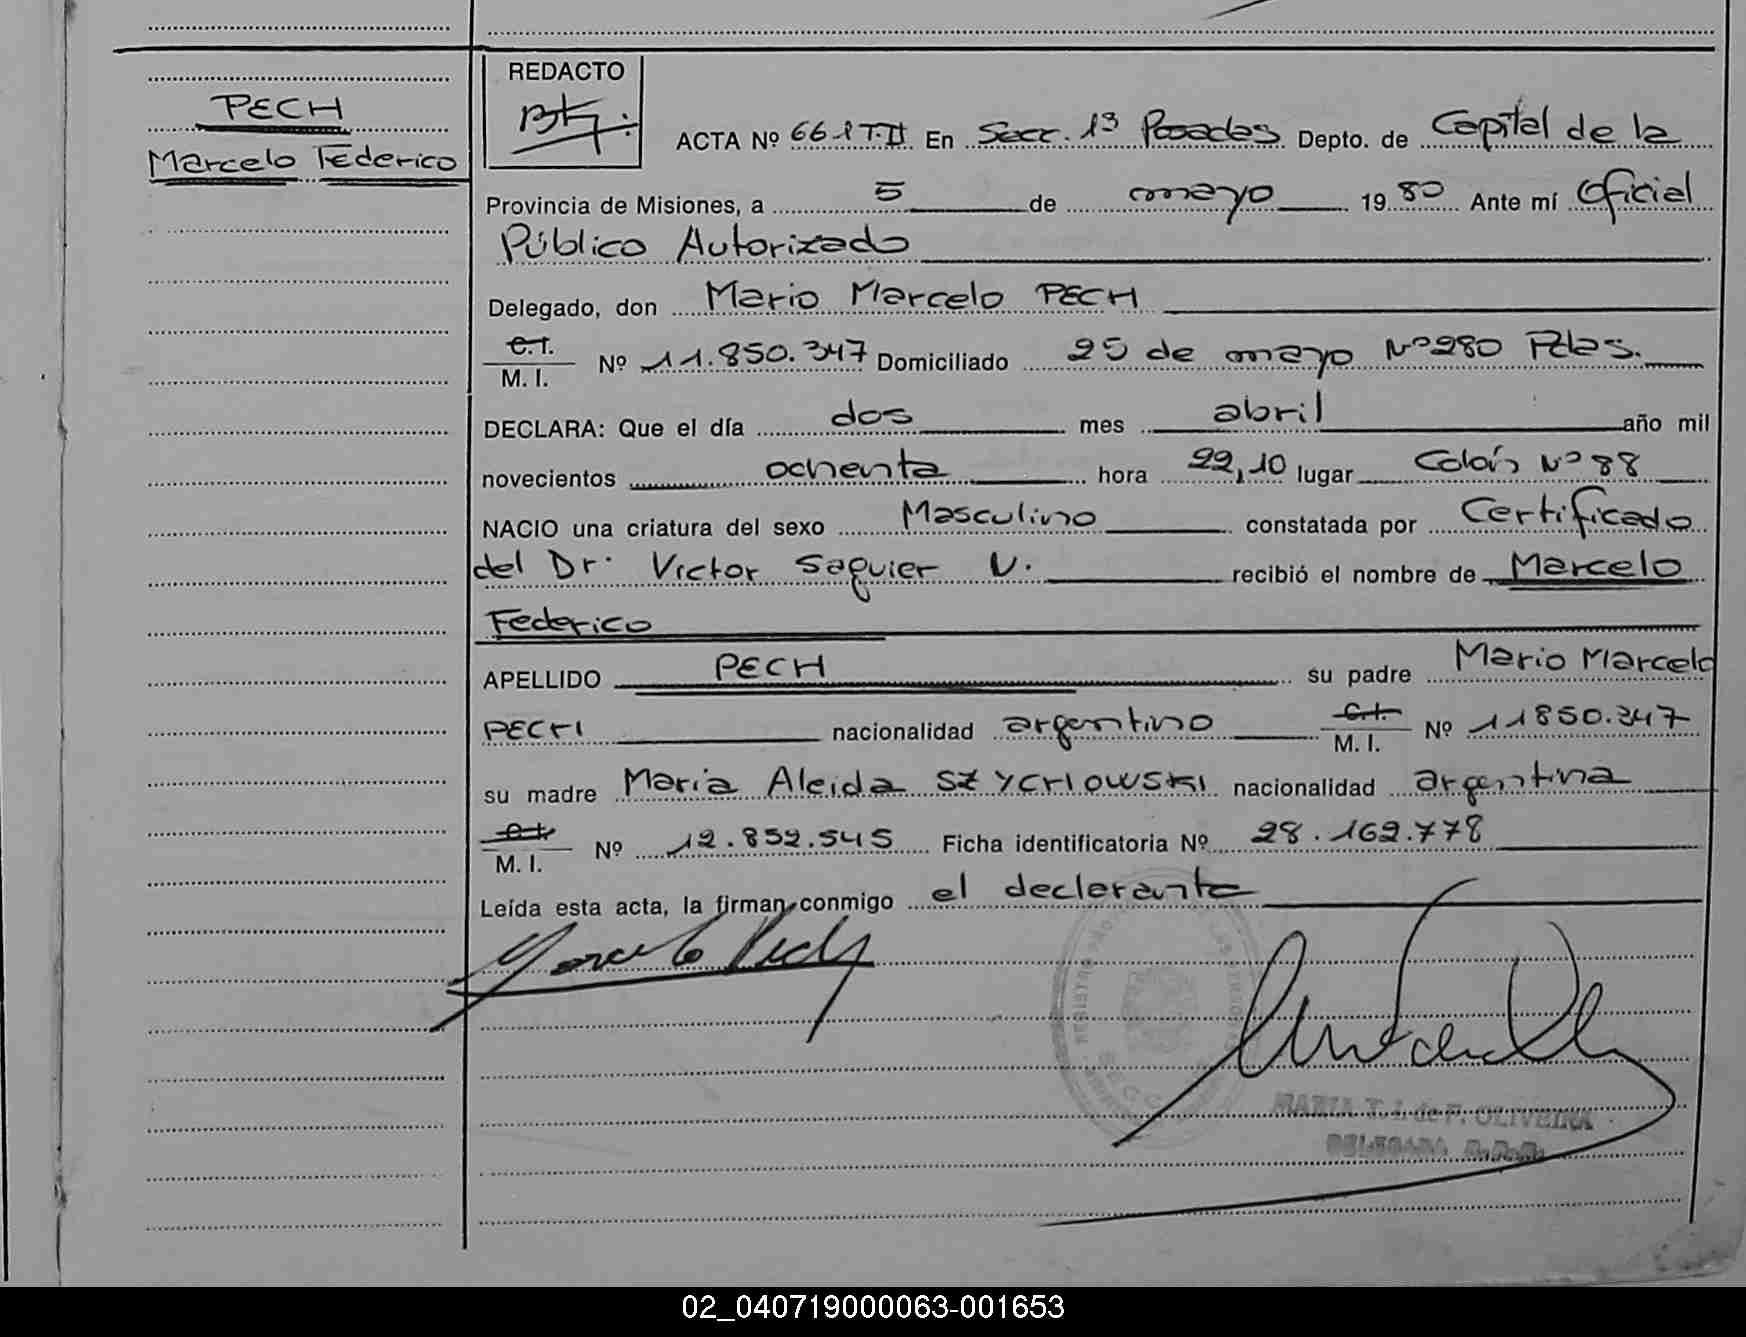 PECH
Marcelo Federico
REDACTO
ACTA Nº 661 T.II En Secc. 1ª Posadas Depto. de Capital de la
Provincia de Misiones, a 5 de mayo 1980 Ante mí Oficial
Público Autorizado
Delegado, don Mario Marcelo PECH
C.I.
M. I. Nº 11.850.347 Domiciliado 25 de mayo Nº 280 Pdas.
DECLARA: Que el día dos mes abril año mil
novecientos ochenta hora 22,10 lugar Colón Nº 88
NACIO una criatura del sexo Masculino constatada por Certificado
del Dr. Victor Saguier N. recibió el nombre de Marcelo
Federico
APELLIDO PECH su padre Mario Marcelo
PECH nacionalidad argentino C.I. M. I. Nº 11850.347
su madre Maria Aleida SZYCHOWSKI nacionalidad argentina
C.I.
M. I. Nº 12.852.545 Ficha identificatoria Nº 28.162.778
Leída esta acta, la firman conmigo el declarante
Marcelo Pech
MARIA T. I. de F. OLIVEIRA
DELEGADA
02_040719000063-001653